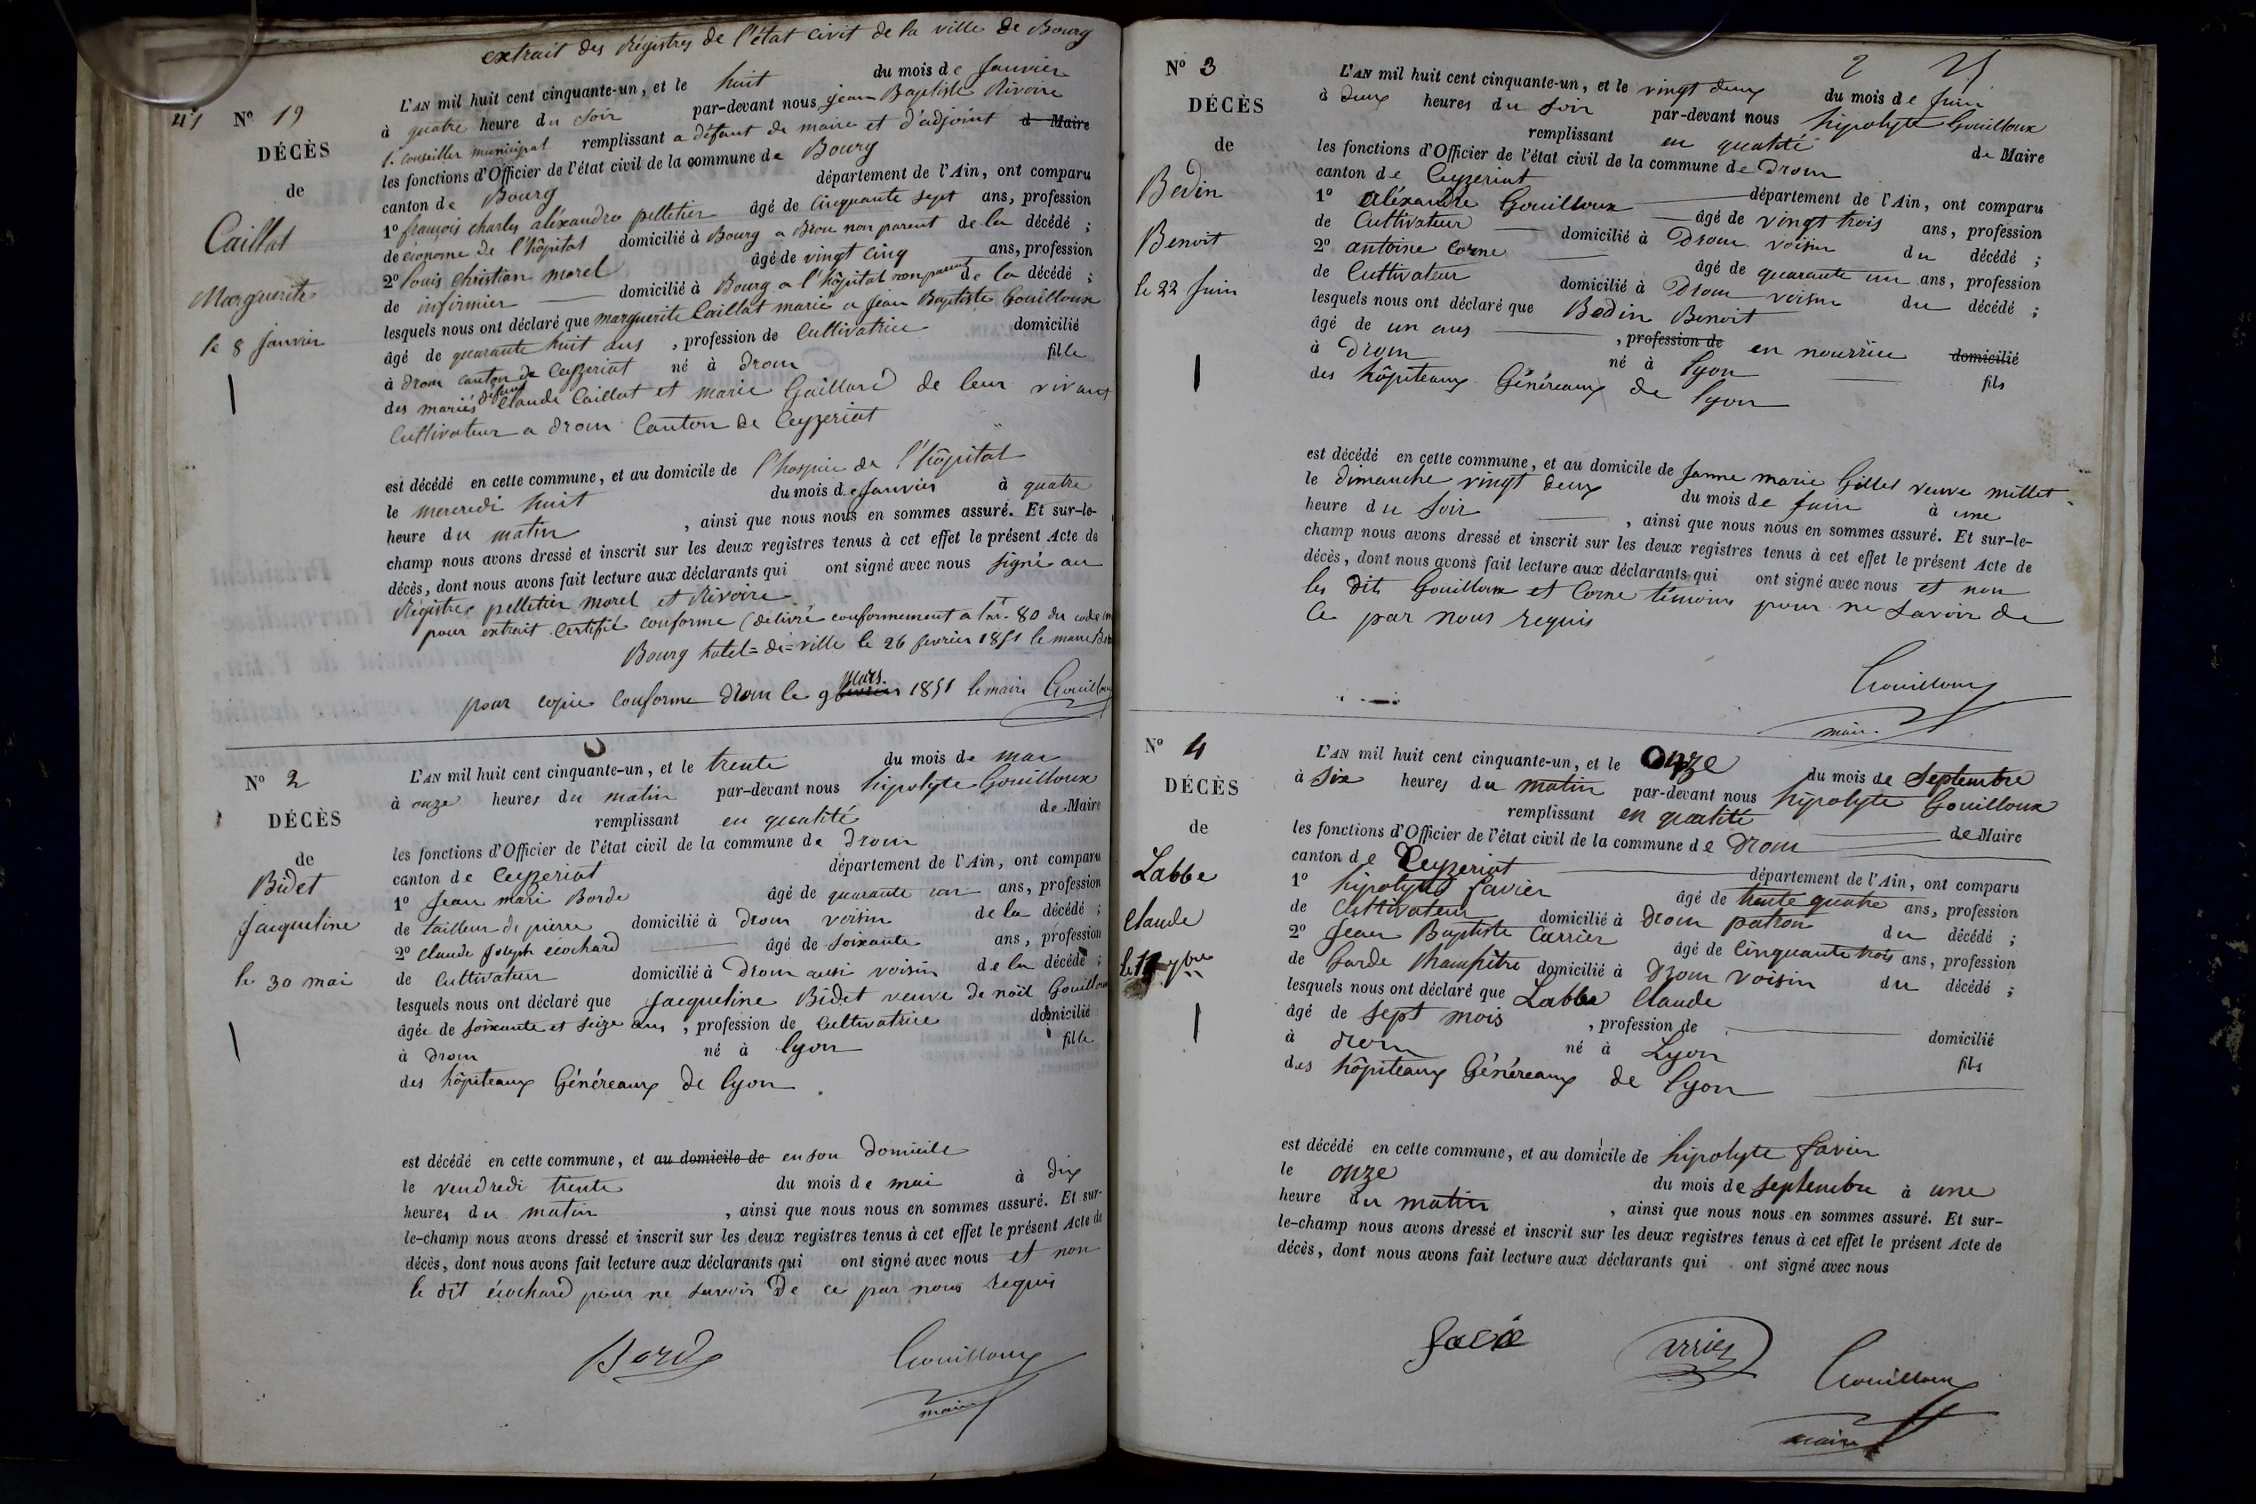 extrait des Régistres de l'état civil de la ville de Bourg
N° 19
DÉCÈS
de
Caillat
Marguerite
le 8 Janvier
L'AN mil huit cent cinquante-un, et le huit du mois de Janvier
à quatre heure du soir par-devant nous jean Baptiste Rivoire
1. conseiller municipal remplissant a défaut de maire et d'adjoint d Maire
les fonctions d'Officier de l'état civil de la commune de Bourg
canton de Bourg département de l'Ain, ont comparu
1° françois charles aléxandre pelletier âgé de Cinquante sept ans, profession
de économe de l'hôpital domicilié à Bourg a Brou non parent de la décédé ;
2° Louis Christian morel âgé de vingt cinq ans, profession
de infirmier domicilié à Bourg a l'hôpital non parent de la décédé ;
lesquels nous ont déclaré que marguerite Caillat mariée a Jean Baptiste Gouilloux
âgé de quarante huit ans , profession de Cultivatrice domicilié
à Drom canton de Ceyzeriat né à Drom fille
des mariés défunt Claude Caillat et marie Gaillard de leur vivant
Cultivateur a Drom Canton de Ceyzeriat
est décédé en cette commune, et au domicile de l'hospice de l'hôpital
le mercredi huit du mois de Janvier à quatre
heure du matin , ainsi que nous nous en sommes assuré. Et sur-le-
champ nous avons dressé et inscrit sur les deux registres tenus à cet effet le présent Acte de
décès, dont nous avons fait lecture aux déclarants qui ont signé avec nous signé au
Régistre pelletier morel et Rivoire
pour extrait certifié conforme (délivré conformement a l'ar. 80 du code
Bourg hotel=de=ville le 26 fevrier 1851 le maire
pour copie conforme Drom le 9 fevrier mars 1851 le maire Gouilloux
N° 2
DÉCÈS
de
Bidet
Jacqueline
le 30 mai
L'AN mil huit cent cinquante-un, et le trente du mois de mai
à onze heures du matin par-devant nous hipolyte Gouilloux
remplissant en qualité de Maire
les fonctions d'Officier de l'état civil de la commune de Drom
canton de Ceyzeriat département de l'Ain, ont comparu
1° Jean marie Borde âgé de quarante un ans, profession
de tailleur de pierre domicilié à Drom voisin de la décédé ;
2° Claude Joseph écochard âgé de soixante ans, profession
de Cultivateur domicilié à Drom aussi voisin de la décédé ;
lesquels nous ont déclaré que Jacqueline Bidet veuve de noël Gouilloux
âgée de soixante et seize ans , profession de Cultivatrice domicilié
à Drom né à Lyon fille
des hôpiteaux Généreaux de Lyon
est décédé en cette commune, et au domicile de en son Domicile
le vendredi trente du mois de mai à dix
heures du matin , ainsi que nous nous en sommes assuré. Et sur-
le-champ nous avons dressé et inscrit sur les deux registres tenus à cet effet le présent Acte de
décès, dont nous avons fait lecture aux déclarants qui ont signé avec nous et non
le dit écochard pour ne savoir de ce par nous requis
Borde Gouilloux
maire
2 25
N° 3
DÉCÈS
de
Bedin
Benoit
le 22 Juin
L'AN mil huit cent cinquante-un, et le vingt deux du mois de Juin
à deux heures du soir par-devant nous hipolyte Gouilloux
remplissant en qualité de Maire
les fonctions d'Officier de l'état civil de la commune de Drom
canton de Ceyzeriat département de l'Ain, ont comparu
1° aléxandre Gouilloux âgé de vingt trois ans, profession
de Cultivateur domicilié à Drom voisin du décédé ;
2° antoine Corne âgé de quarante un ans, profession
de Cultivateur domicilié à Drom voisin du décédé ;
lesquels nous ont déclaré que Bedin Benoit
âgé de un ans , profession de en nourrice domicilié
à Drom né à Lyon fils
des hôpiteaux Généreaux de Lyon
est décédé en cette commune, et au domicile de Janne marie Gillet veuve millet
le dimanche vingt deux du mois de Juin à une
heure du soir , ainsi que nous nous en sommes assuré. Et sur-le-
champ nous avons dressé et inscrit sur les deux registres tenus à cet effet le présent Acte de
décès, dont nous avons fait lecture aux déclarants qui ont signé avec nous et non
les dits Gouilloux et Corne témoins pour ne savoir de
Ce par nous requis
Gouilloux
maire
N° 4
DÉCÈS
de
Labbe
Claude
le 11 7bre
L'AN mil huit cent cinquante-un, et le onze du mois de Septembre
à six heures du matin par-devant nous hipolyte Gouilloux
remplissant en qualité de Maire
les fonctions d'Officier de l'état civil de la commune de Drom
canton de Ceyzeriat département de l'Ain, ont comparu
1° hipolyte favier âgé de trente quatre ans, profession
de Cultivateur domicilié à Drom patron du décédé ;
2° Jean Baptiste Carrier âgé de Cinquante trois ans, profession
de Garde Champêtre domicilié à Drom voisin du décédé ;
lesquels nous ont déclaré que Labbe Claude
âgé de sept mois , profession de domicilié
à Drom né à Lyon fils
des hôpiteaux Généreaux de Lyon
est décédé en cette commune, et au domicile de hipolyte favier
le onze du mois de septembre à une
heure du matin , ainsi que nous nous en sommes assuré. Et sur-
le-champ nous avons dressé et inscrit sur les deux registres tenus à cet effet le présent Acte de
décès, dont nous avons fait lecture aux déclarants qui ont signé avec nous
Carrier
Gouilloux
maire